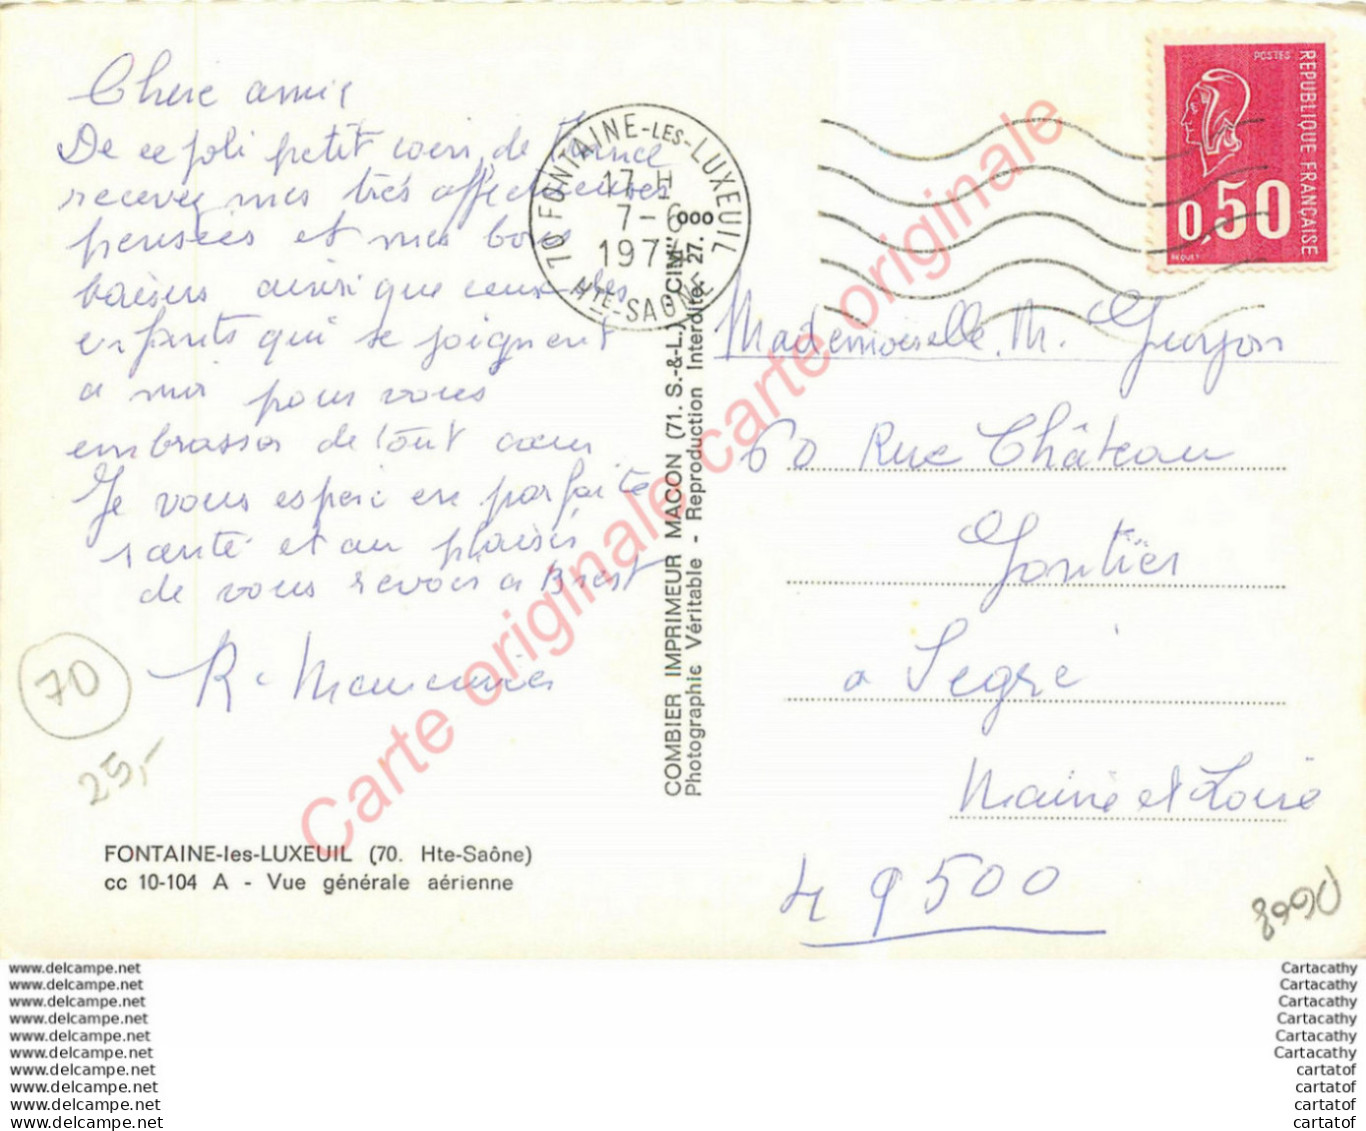 Chere amie
De ce joli petit coin de France
recevez mes très affectueuses
pensées et mes bons
baisers ainsi que ceux des
enfants qui se joignent
a moi pour vous
embrasser de tout cœur
Je vous espère en parfaite
santé et au plaisir
de vous revoir a Brest
R.
70
25,-
FONTAINE-les-LUXEUIL (70. Hte-Saône)
cc 10-104 A - Vue générale aérienne
70 FONTAINE-LES-LUXEUIL
17 H
7-6
1974
HTE-SAÔNE
COMBIER IMPRIMEUR MACON (71. S.-&-L.) "CIM"
Photographie Véritable - Reproduction Interdite 27. 000
POSTES
REPUBLIQUE FRANÇAISE
0,50
BEQUET
Mademoiselle. M.
60 Rue Château
Gontier
a Segré
Maine et Loire
49500
8990
Carte originale carte originale
www.delcampe.net
www.delcampe.net
www.delcampe.net
www.delcampe.net
www.delcampe.net
www.delcampe.net
www.delcampe.net
www.delcampe.net
www.delcampe.net
www.delcampe.net
Cartacathy
Cartacathy
Cartacathy
Cartacathy
Cartacathy
Cartacathy
cartatof
cartatof
cartatof
cartatof